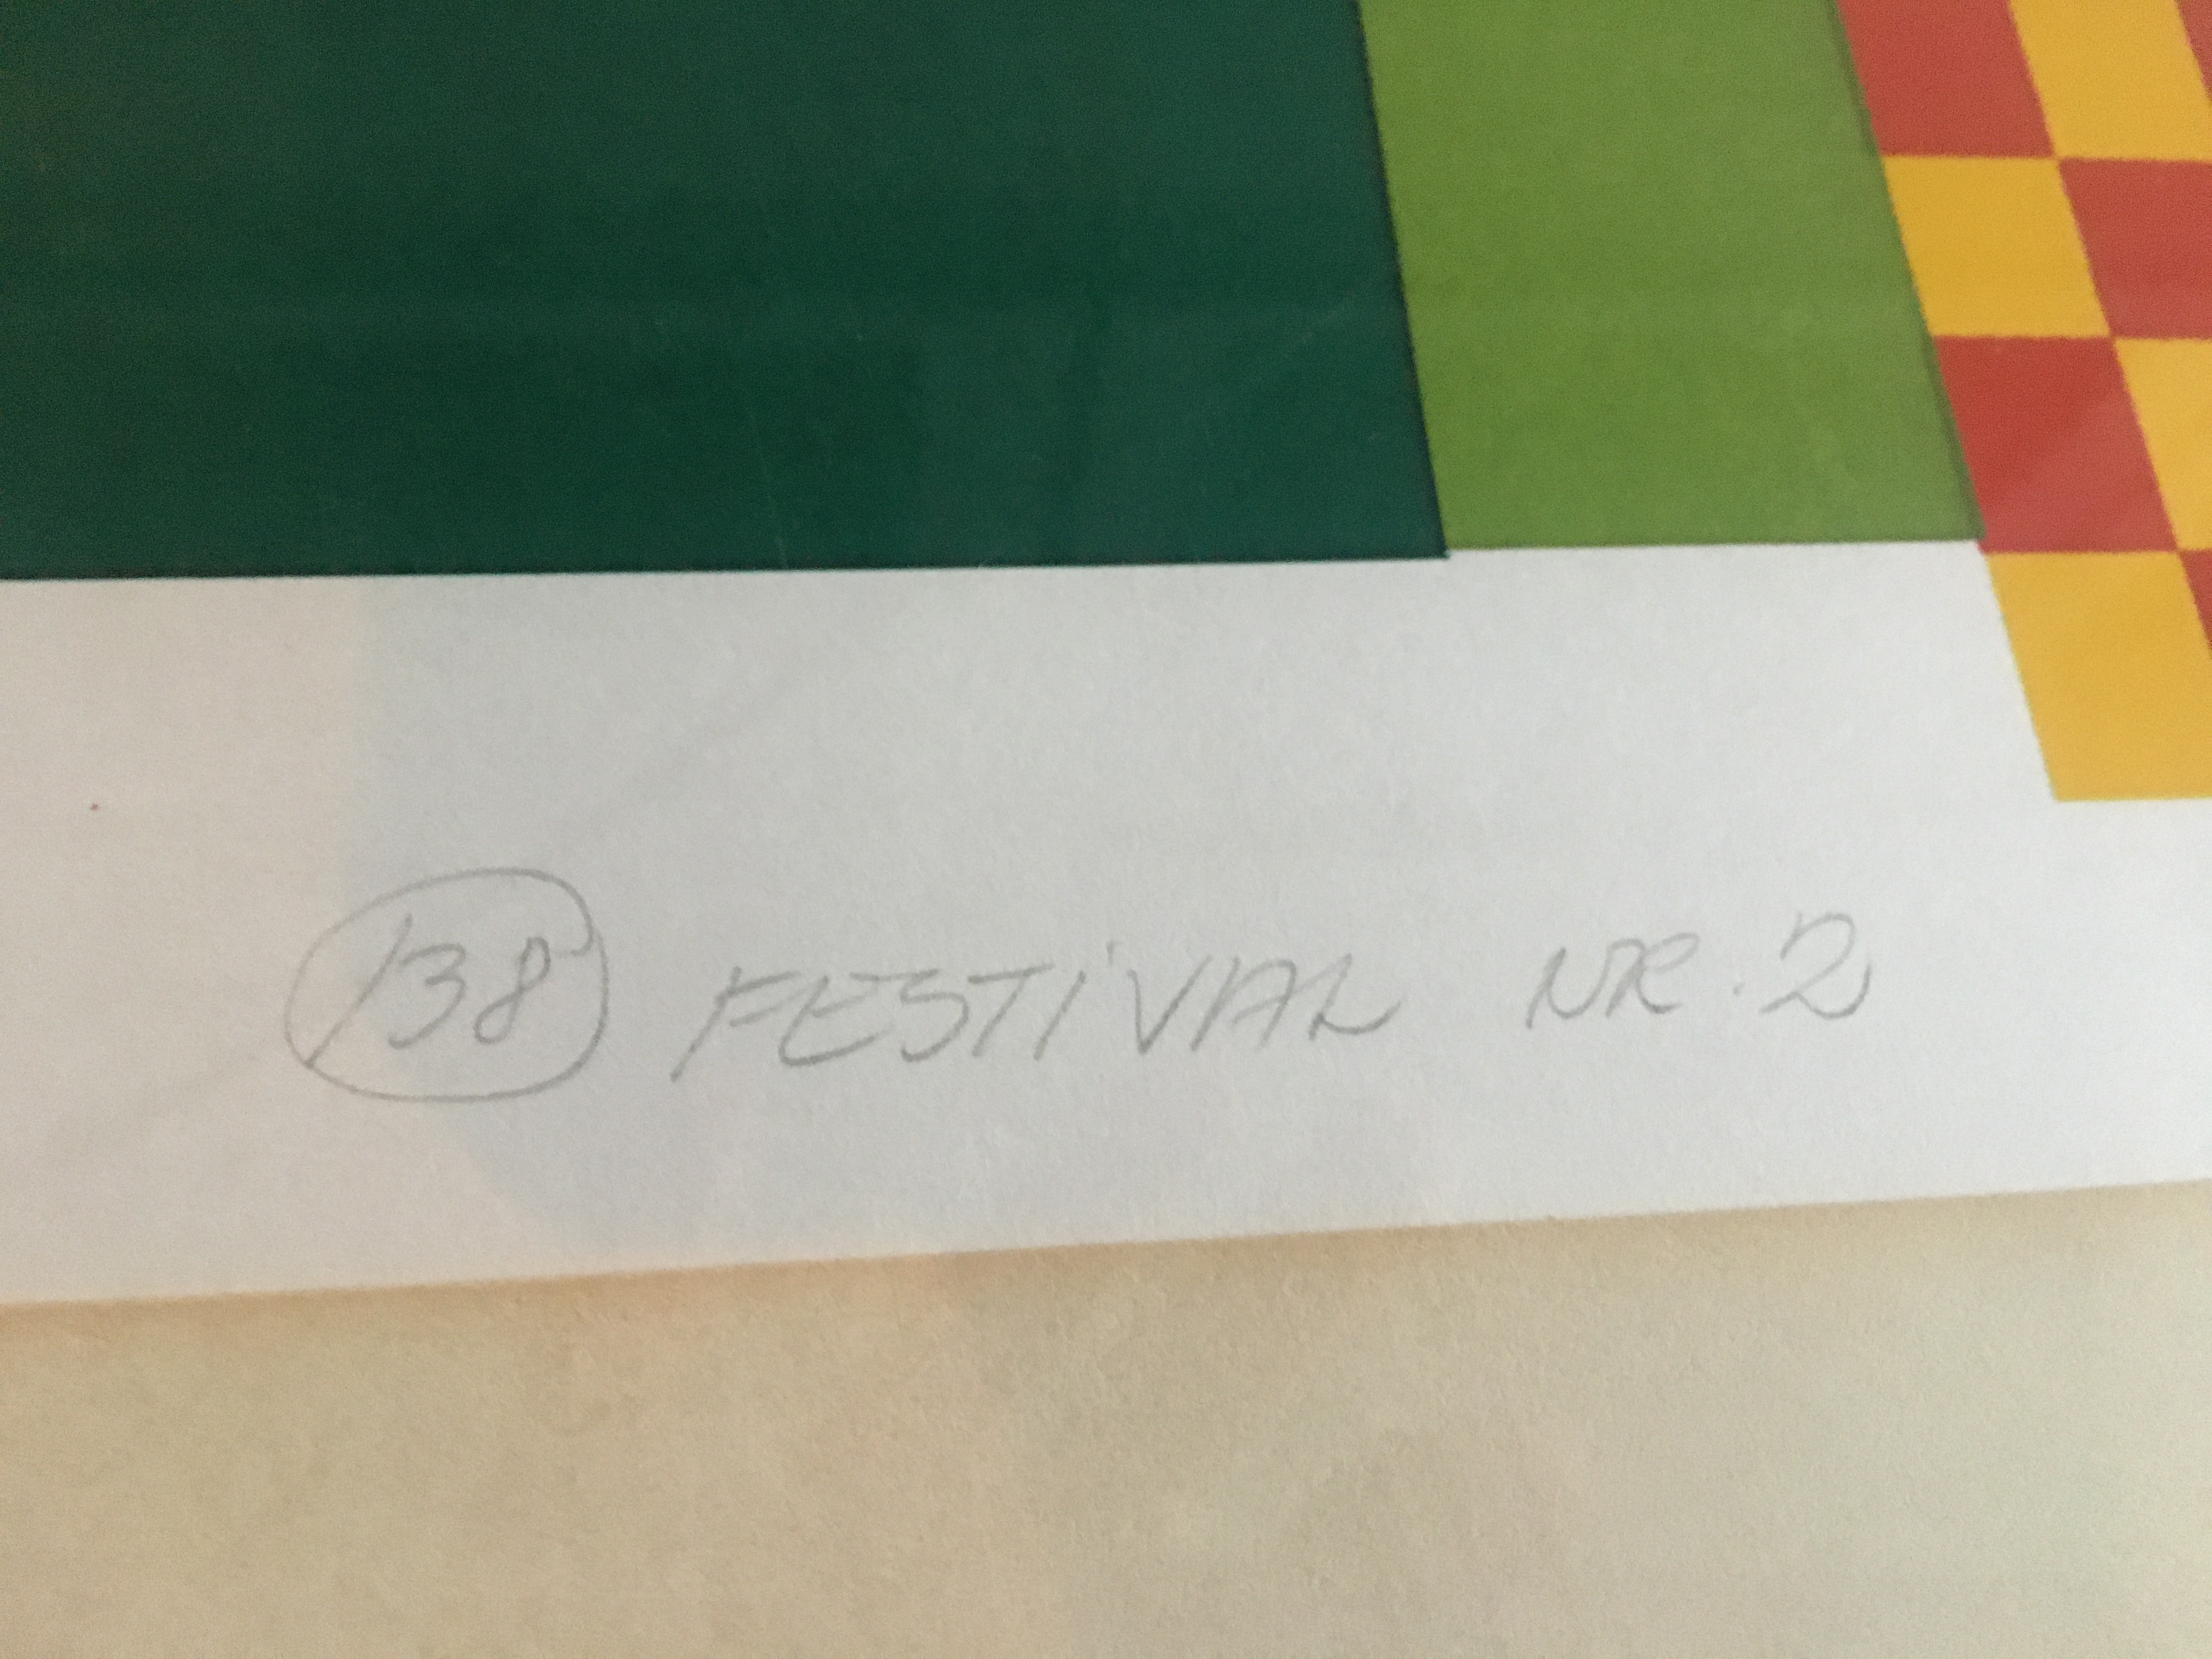 138 FESTiVAL NR.2